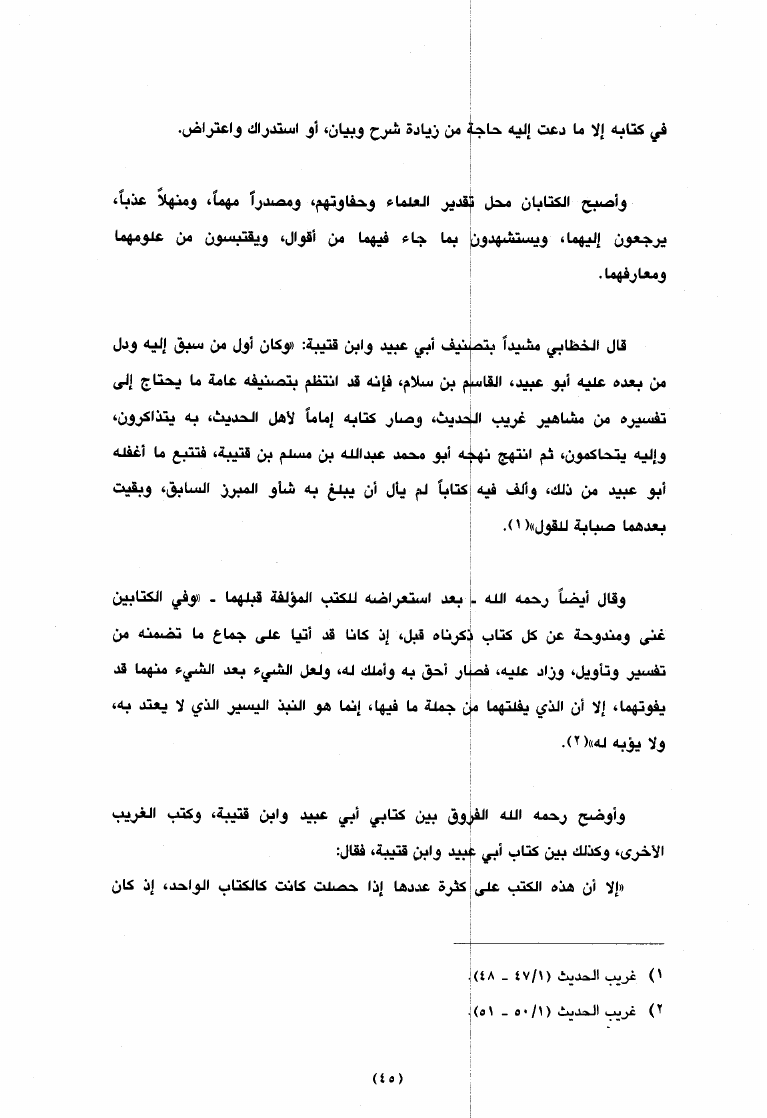 في كتابه إلا ما دعت إليه حاجة من زيادة شرح وبيان، أو استدراك واعتراض.
وأصبح الكتابان محل تقدير العلماء وحفاوتهم، ومصدراً مهماً، ومنهلاً عذباً،
يرجعون إليهما، ويستشهدون بما جاء فيهما من أقوال، ويقتبسون من علومهما
ومعارفهما.
قال الخطابي مشيداً بتصنيف أبي عبيد وابن قتيبة: «وكان أول من سبق إليه ودل
من بعده عليه أبو عبيد، القاسم بن سلام، فإنه قد انتظم بتصنيفه عامة ما يحتاج إلى
تفسيره من مشاهير غريب الحديث، وصار كتابه إماماً لأهل الحديث، به يتذاكرون،
وإليه يتحاكمون، ثم انتهج نهجه أبو محمد عبدالله بن مسلم بن قتيبة، فتتبع ما أغفله
أبو عبيد من ذلك، وألف فيه كتاباً لم يأل أن يبلغ به شأو المبرز السابق، وبقيت
بعدهما صبابة للقول»(١).
وقال أيضاً رحمه الله - بعد استعراضه للكتب المؤلفة قبلهما - «وفي الكتابين
غنى ومندوحة عن كل كتاب ذكرناه قبل، إذ كانا قد أتيا على جماع ما تضمنه من
تفسير وتأويل، وزاد عليه، فصار أحق به وأملك له، ولعل الشيء بعد الشيء منهما قد
يفوتهما، إلا أن الذي يفلتهما من جملة ما فيها، إنما هو النبذ اليسير الذي لا يعتد به،
ولا يؤبه له»(٢).
وأوضح رحمه الله الفروق بين كتابي أبي عبيد وابن قتيبة، وكتب الغريب
الأخرى، وكذلك بين كتاب أبي عبيد وابن قتيبة، فقال:
«إلا أن هذه الكتب على كثرة عددها إذا حصلت كانت كالكتاب الواحد، إذ كان
١) غريب الحديث (٤٧/١ - ٤٨).
٢) غريب الحديث (٥٠/١ - ٥١).
(٤٥)